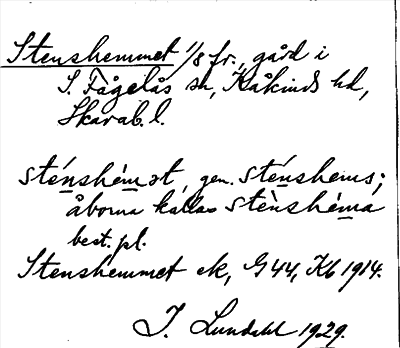 Stenshemmet 1/8 fr., gård i
S. Fågelås sn, Kåkinds hd,
Skarab. l.
sténshém ət, gen. sténshems;
åborna kallas sténshéma
best. pl.
Stenshemmet ek, G 44, Kb 1914.
J. Lundahl 1929.